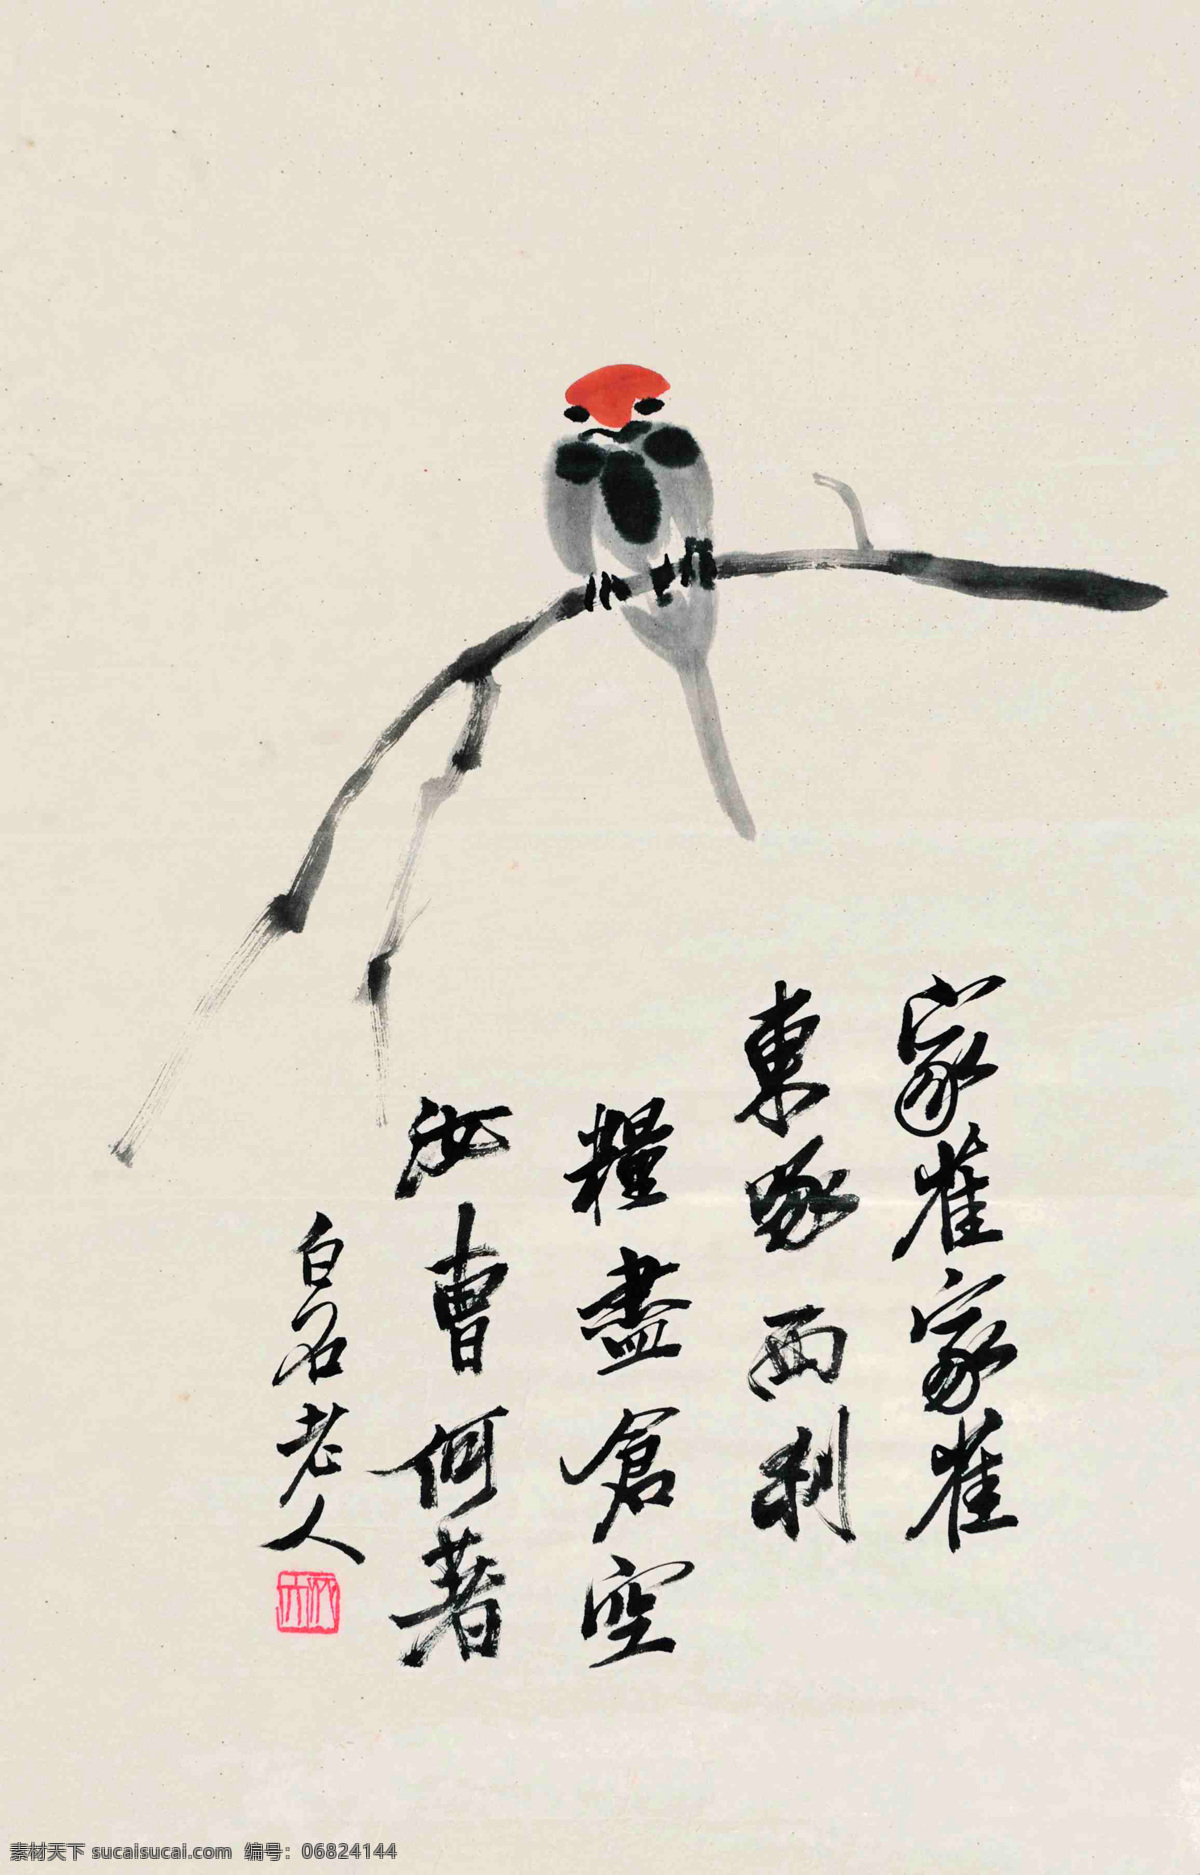 家雀家雀
東啄西剝
糧盡倉空
汝曹何著
白石老人
素材天下 sucaisucai.com 编号：06824144